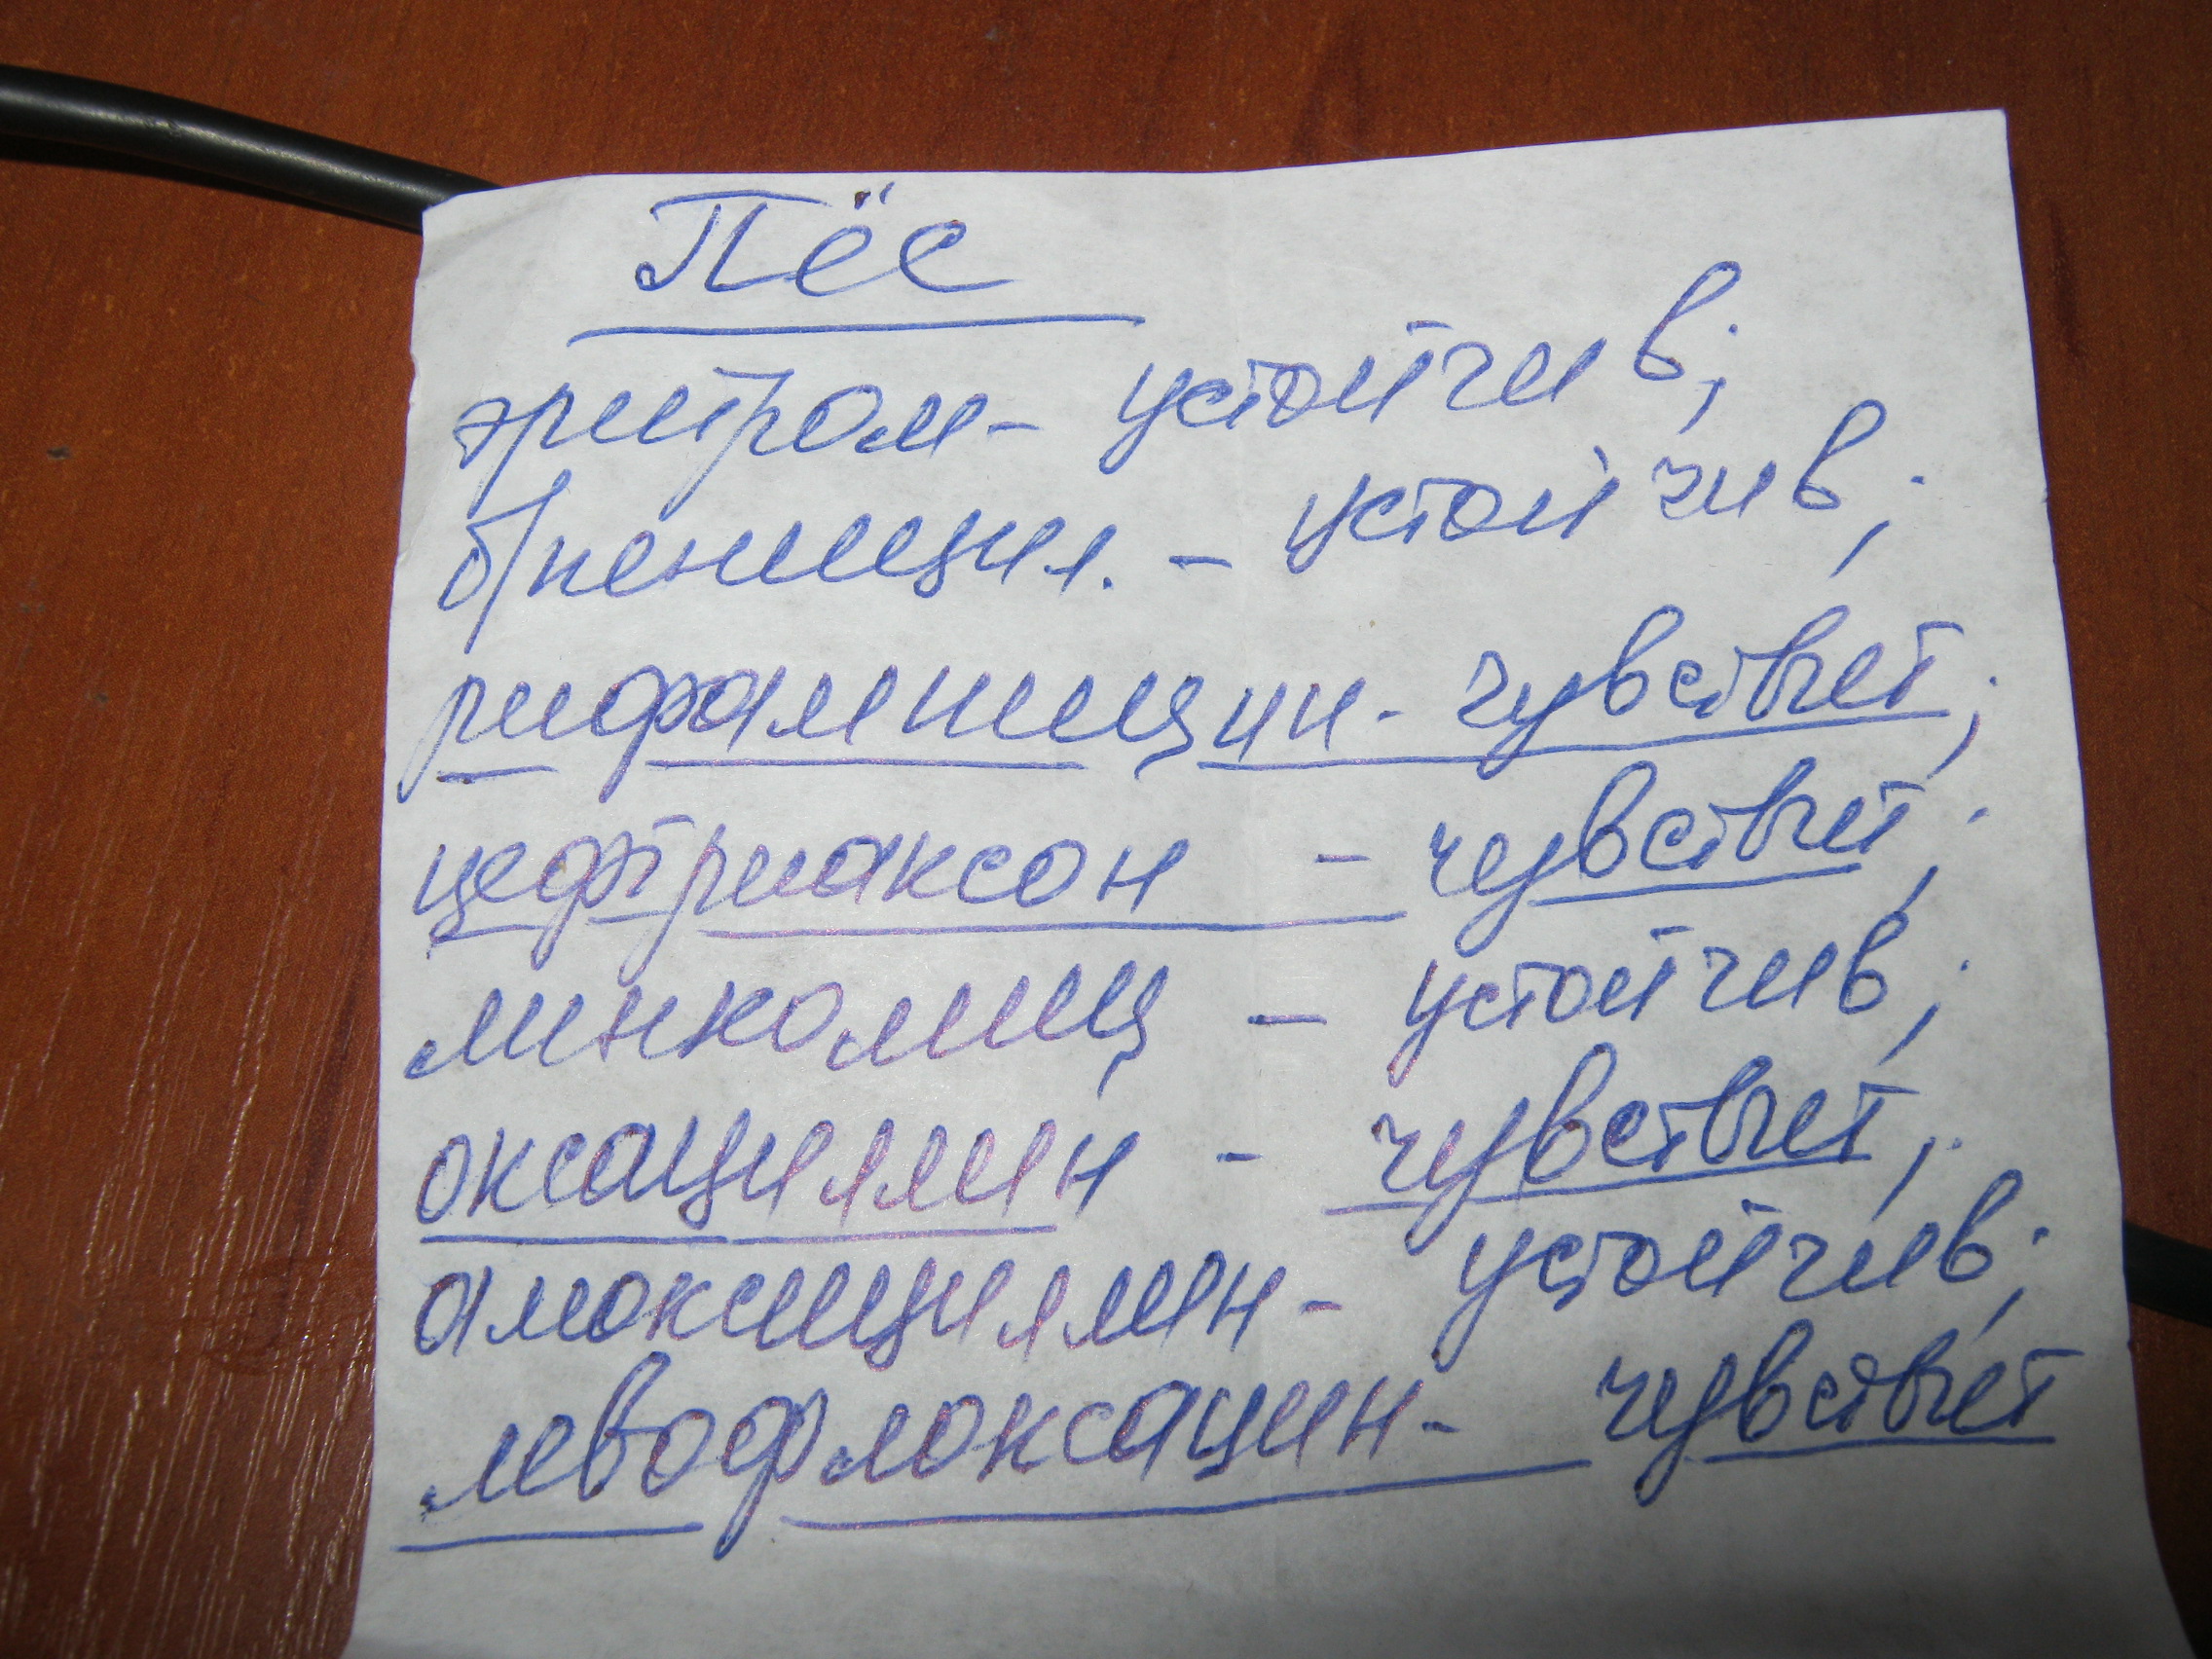 Пёс
эритром- устойчив;
б/пеницил. - устойчив;
рифампицин- чувствует;
цефтриаксон - чувствует;
линкомиц - устойчив;
оксациллин - чувствует;
амоксициллин- устойчив;
левофлоксацин- чувствует